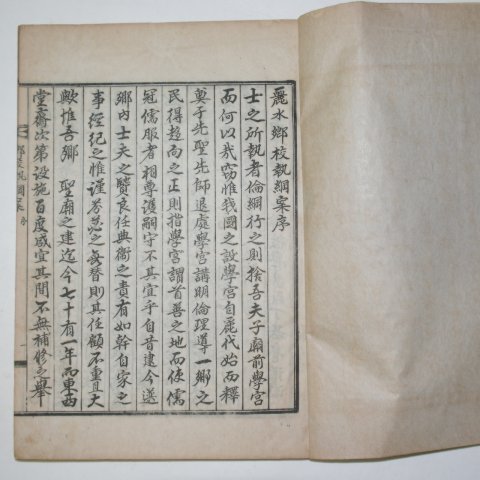 麗水鄕校執綱案序
士之所執者倫綱行之則捨吾夫子廟前學宮
而何以哉窃惟我國之設學宮自麗代始而釋
奠于先聖先師退處學宮講明倫理導一鄕之
民得趨向之正則指學宮謂首善之地而使儒
冠儒服者相尊護嗣守不其宜乎自昔建今遴
鄕內士夫之賢良任典衛之責有如幹自家之
事經紀之惟謹芬苾之毋替則其任顧不重且大
歟惟吾鄕 聖廟之建迄今七十有一年而東西
堂齋次第設施百度咸宜其間不無補修之擧